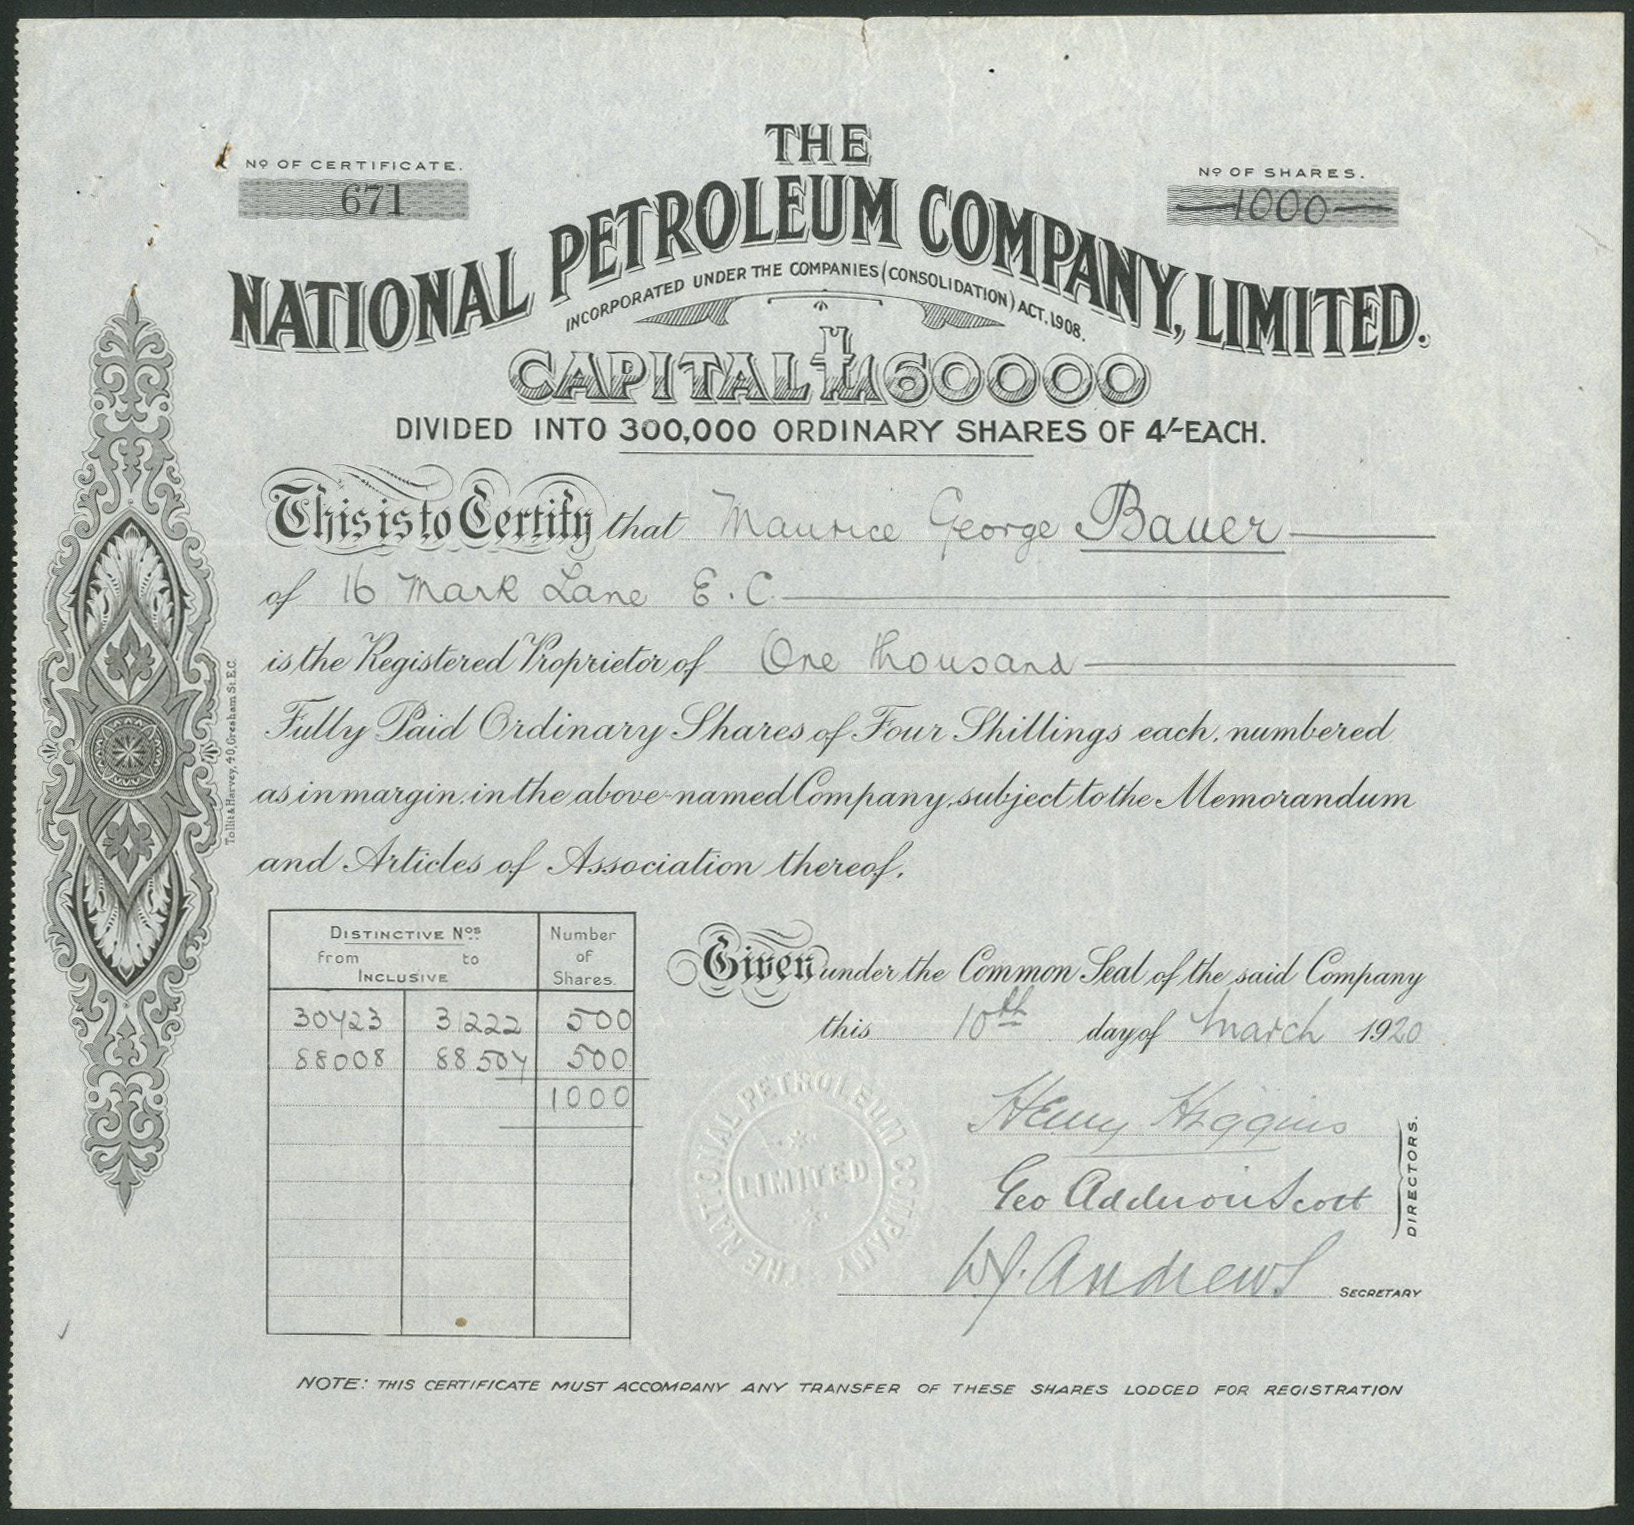 THE
NATIONAL PETROLEUM COMPANY, LIMITED.
Nº OF CERTIFICATE.
671
Nº OF SHARES.
1000
INCORPORATED UNDER THE COMPANIES (CONSOLIDATION) ACT. 1908.
CAPITAL £60000
DIVIDED INTO 300,000 ORDINARY SHARES OF 4/- EACH.
This is to Certify that Maurice George Bauer
of 16 Mark Lane E.C.
is the Registered Proprietor of One thousand
Fully Paid Ordinary Shares of Four Shillings each, numbered
as in margin, in the above-named Company, subject to the Memorandum
and Articles of Association thereof.
Tollit & Harvey, 40, Gresham St. E.C.
DISTINCTIVE Nos. Number
from to of
INCLUSIVE Shares.
30723 31222 500
88008 88507 500
1000
Given under the Common Seal of the said Company
this 10th day of March 1920
THE NATIONAL PETROLEUM COMPANY
LIMITED
Henry Higgins
Geo Scott
DIRECTORS.
W.J. Andrews SECRETARY
NOTE: THIS CERTIFICATE MUST ACCOMPANY ANY TRANSFER OF THESE SHARES LODGED FOR REGISTRATION